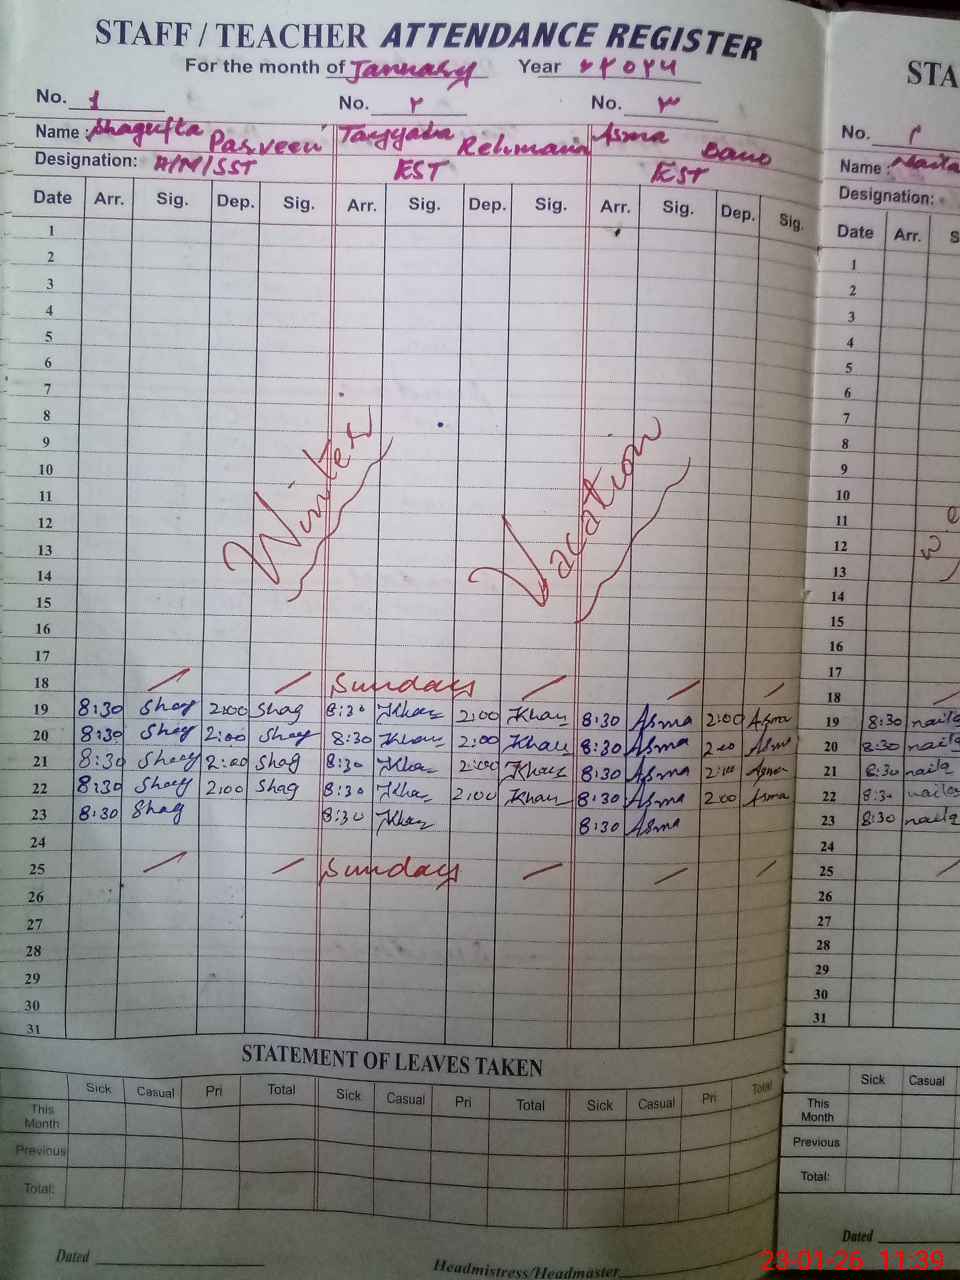 STAFF / TEACHER ATTENDANCE REGISTER
For the month of January Year
No. 1 No. ۲ No. ۳
Name : Shagufta Parveen Tayyaba Rehmann Asma Bano
Designation: H/M/SST EST EST
Date Arr. Sig. Dep. Sig. Arr. Sig. Dep. Sig. Arr. Sig. Dep. Sig.
1
2
3
4
5
6
7
8
9
10
11
12
13
14
15
16
17
Winter Vacation
18 Sunday
19 8:30 Shag 2:00 Shag 8:30 Khan 2:00 Khan 8:30 Asma 2:00 Asma
20 8:30 Shag 2:00 Shag 8:30 Khan 2:00 Khan 8:30 Asma 2:00 Asma
21 8:30 Shag 2:00 Shag 8:30 Khan 2:00 Khan 8:30 Asma 2:00 Asma
22 8:30 Shag 2:00 Shag 8:30 Khan 2:00 Khan 8:30 Asma 2:00 Asma
23 8:30 Shag 8:30 Khan 8:30 Asma
24
25 Sunday
26
27
28
29
30
31
STATEMENT OF LEAVES TAKEN
Sick Casual Pri Total Sick Casual Pri Total Sick Casual Pri Total
This Month
Previous
Total:
Dated
Headmistress/Headmaster
STA
No.
Name : Naila
Designation:
Date Arr. S
1
2
3
4
5
6
7
8
9
10
11
12
13
14
15
16
17
18
19 8:30 naila
20 8:30 naila
21 8:30 naila
22 8:30 naila
23 8:30 naila
24
25
26
27
28
29
30
31
Sick Casual
This Month
Previous
Total:
Dated
23-01-26 11:39